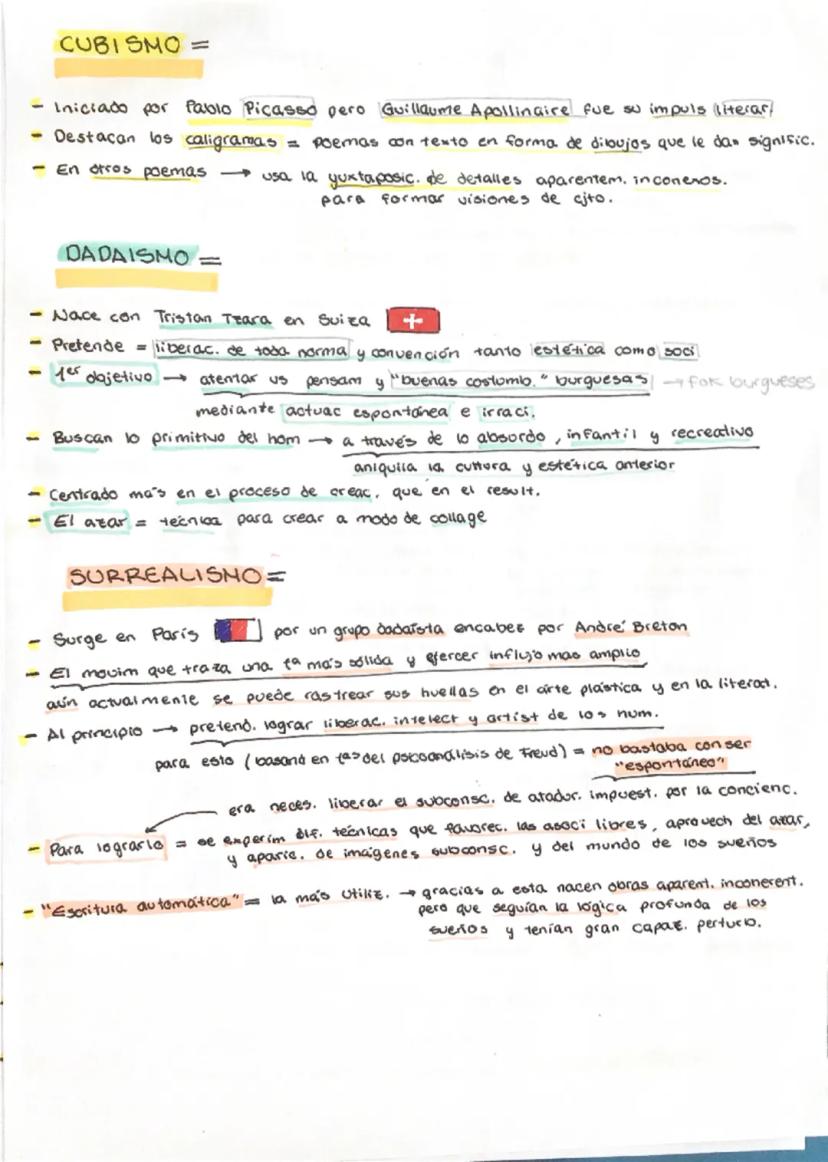 CUBISMO =
- Iniciado por Pablo Picasso pero Guillaume Apollinaire fue su impuls literar
- Destacan los caligramas = poemas con texto en forma de dibujos que le dan signific.
- En otros poemas → usa la yuxtaposic. de detalles aparentem. inconexos.
para formar visiones de cjto.
DADAISMO =
- Nace con Tristan Tzara en Suiza
- Pretende = liberac. de toda norma y convención tanto estética como soci
- 1er objetivo → atentar vs pensam y "buenas costumb." burguesas → fok burgueses
mediante actuac espontánea e irraci.
- Buscan lo primitivo del hom → a través de lo absurdo, infantil y recreativo
aniquila la cultura y estética anterior
- Centrado más en el proceso de creac. que en el result.
- El azar = técnica para crear a modo de collage
SURREALISMO =
- Surge en París por un grupo dadaísta encabez por André Breton
- El movim que traza una ta más sólida y ejercer influjo mas amplio
aún actualmente se puede rastrear sus huellas en el arte plástica y en la literat.
- Al principio → pretend. lograr liberac. intelect y artist de los hum.
para esto (basand en tas del psicoanálisis de Freud) = no bastaba con ser
"espontáneo"
era neces. liberar el subconsc. de atadur. impuest. por la concienc.
- Para lograrlo = se experim dif. técnicas que favorec. las asoci libres, aprovech del azar,
y aparic. de imágenes subconsc. y del mundo de los sueños
- "Escritura automática" = la más utiliz. → gracias a esta nacen obras aparent. incoherent.
pero que seguían la lógica profunda de los
sueños y tenían gran capaz. perturb.